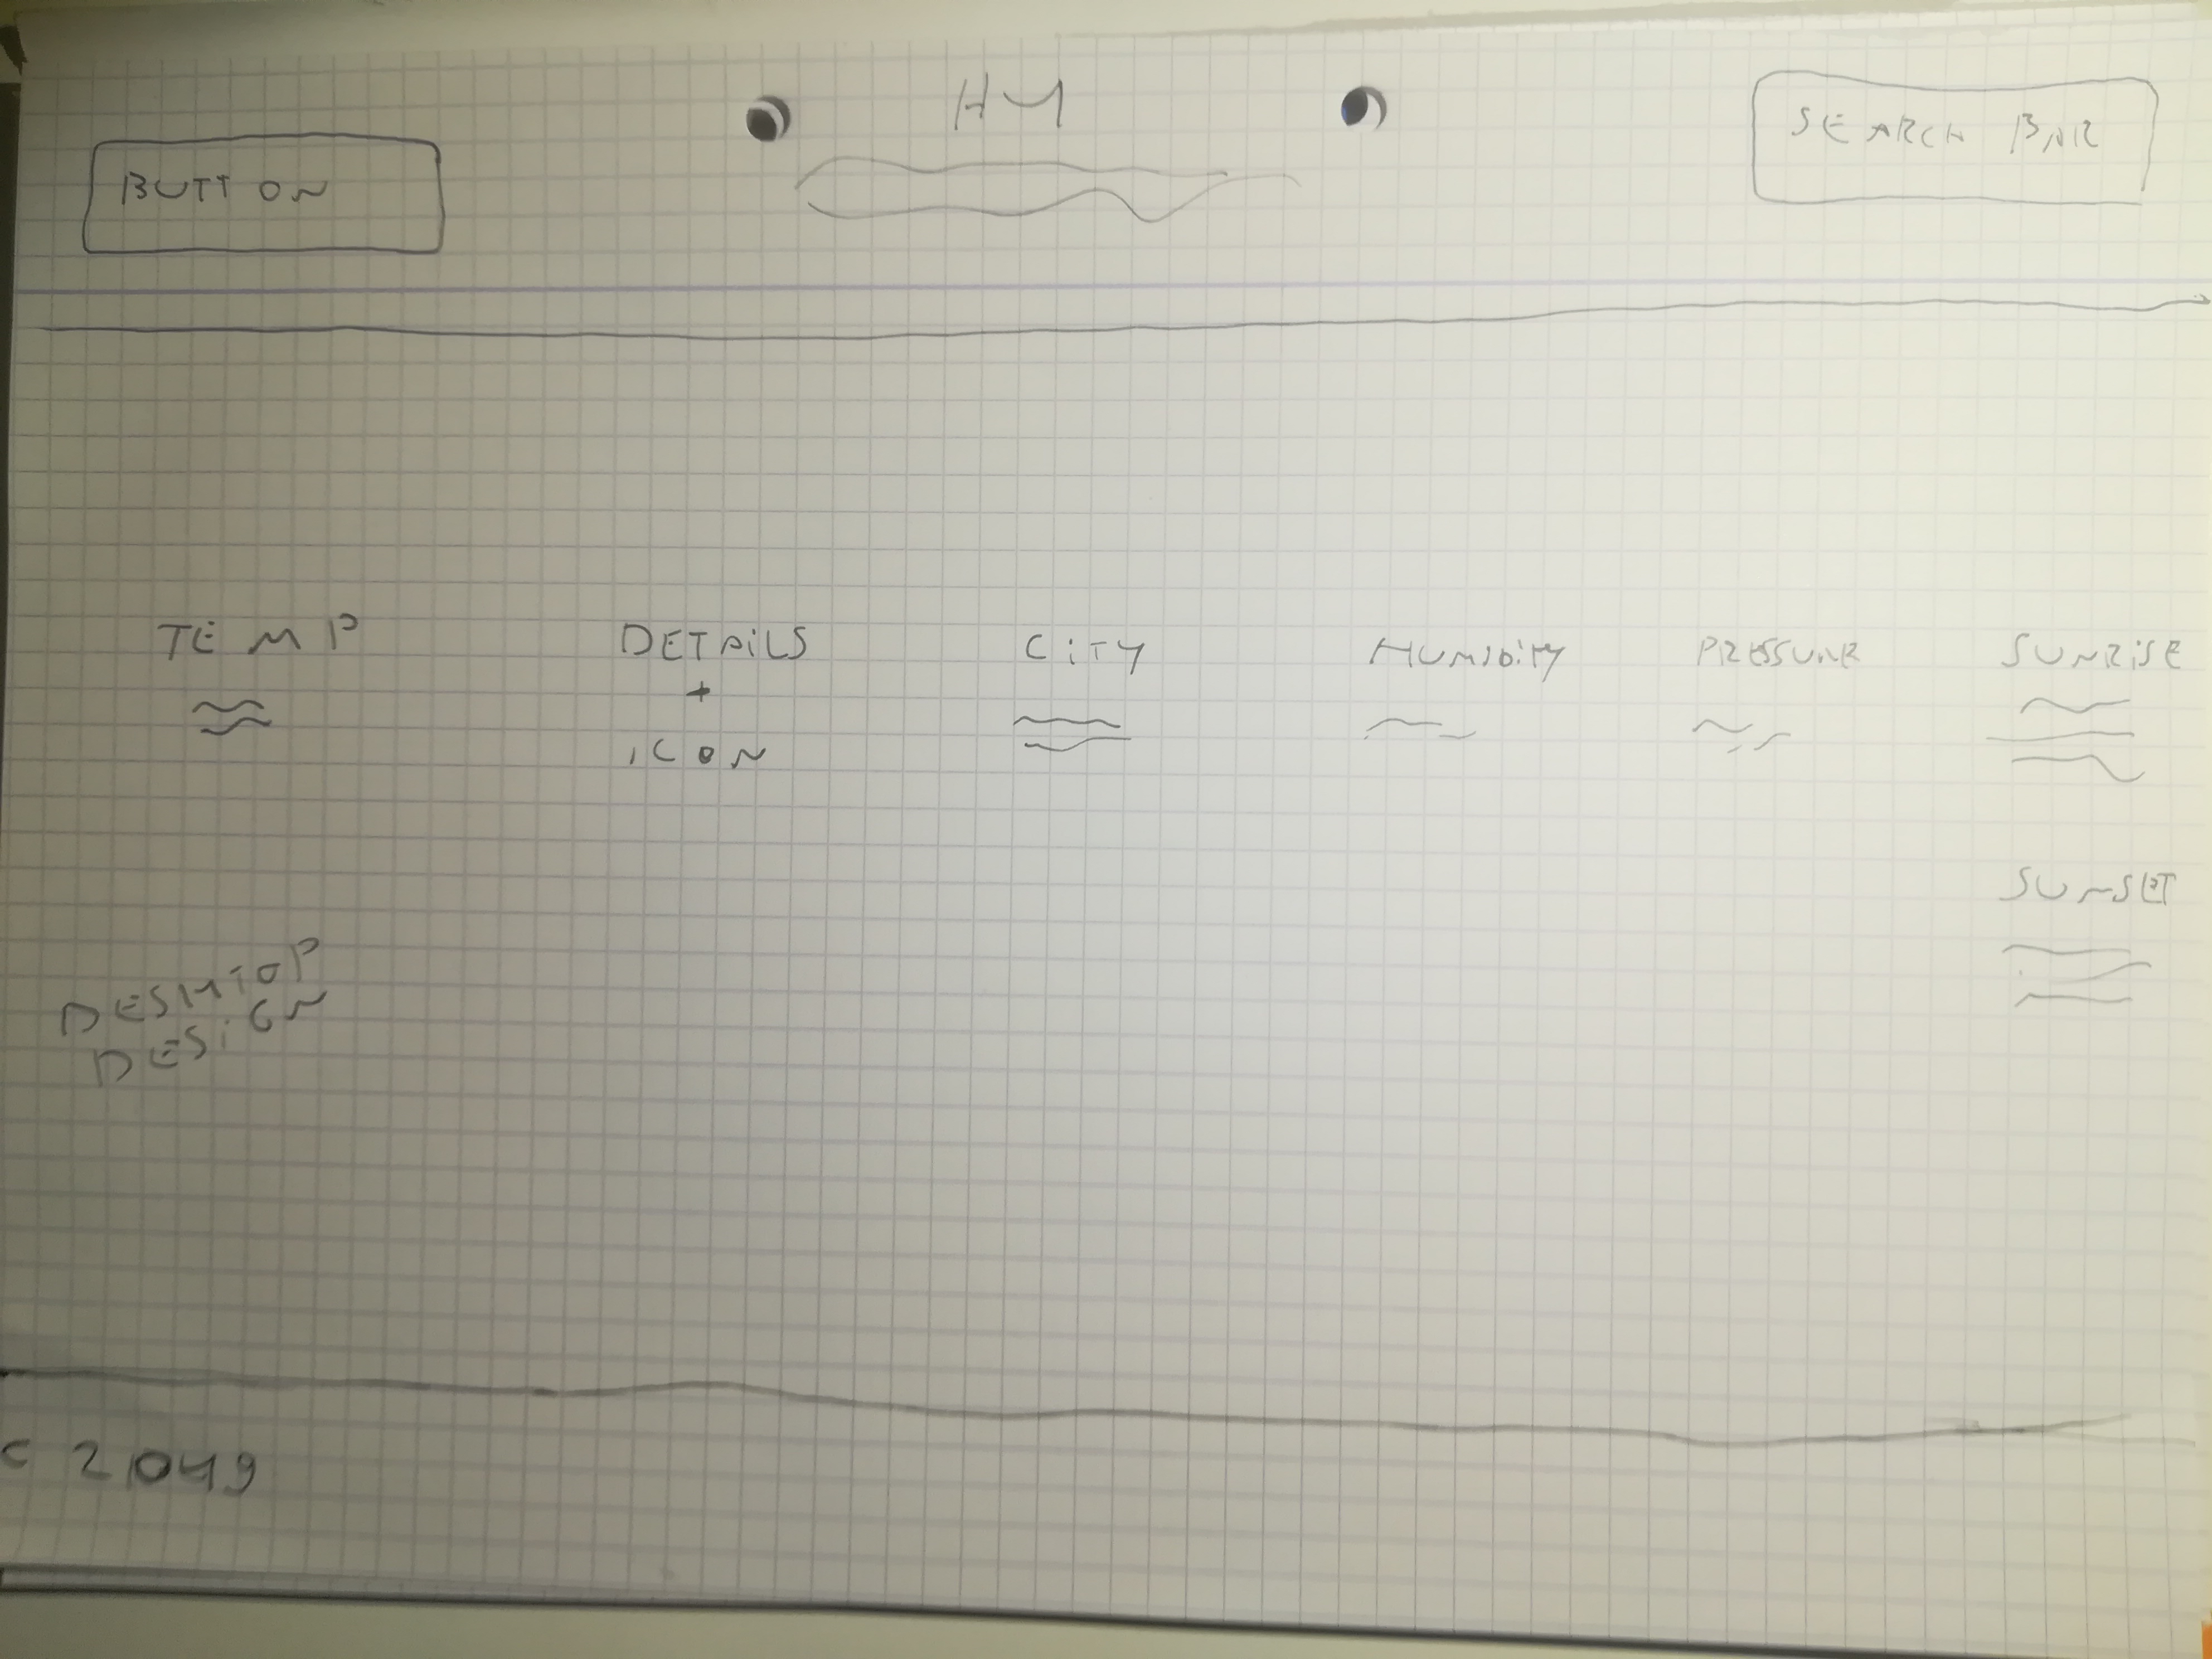 H4
BUTTON
SEARCH BAR
TEMP
DETAILS
+
ICON
CITY
HUMIDITY
PRESSURE
SUNRISE
SUNSET
DESKTOP
DESIGN
C 2049